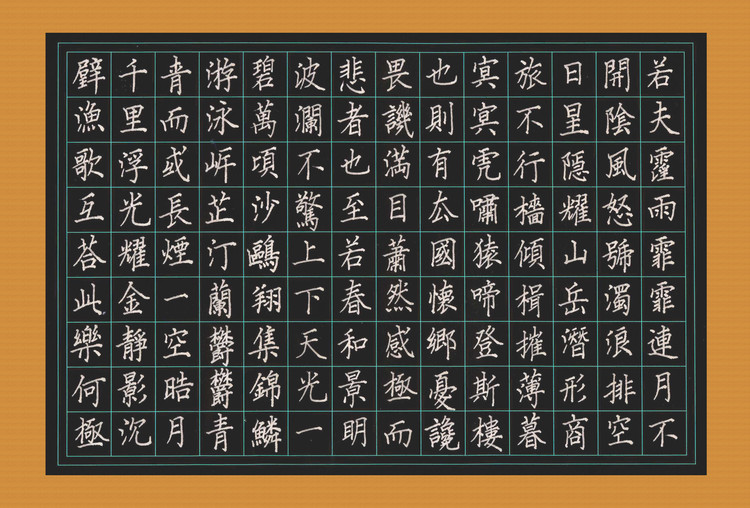 若夫霪雨霏霏連月不
開陰風怒號濁浪排空
日星隱耀山岳潛形商
旅不行檣傾楫摧薄暮
冥冥虎嘯猿啼登斯樓
也則有去國懷鄉憂讒
畏譏滿目蕭然感極而
悲者也至若春和景明
波瀾不驚上下天光一
碧萬頃沙鷗翔集錦鱗
游泳岸芷汀蘭鬱鬱青
青而或長煙一空晧月
千里浮光耀金靜影沉
璧漁歌互荅此樂何極